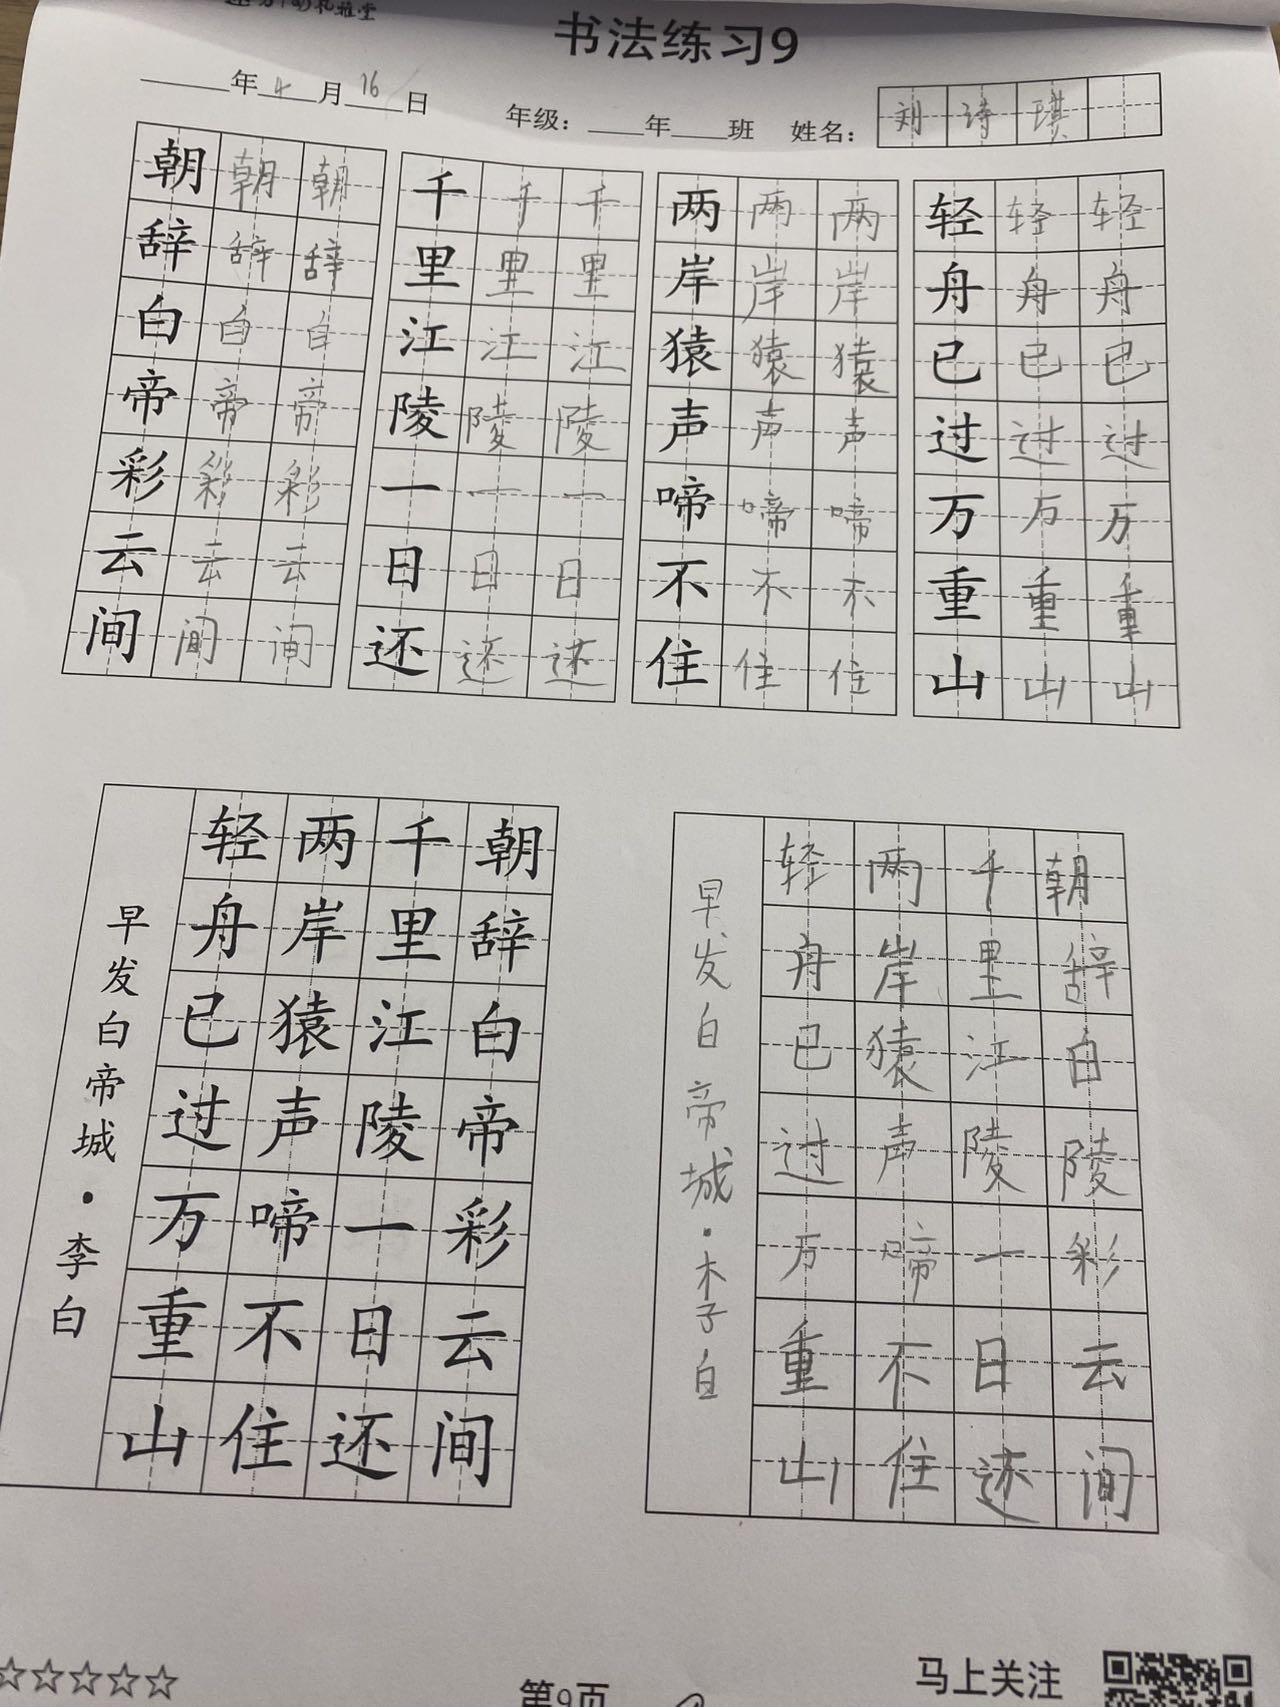 书法练习9
年4月16日 年级：年班 姓名：刘诗琪
朝朝朝 千千千 两两两 轻轻轻
辞辞辞 里里里 岸岸岸 舟舟舟
白白白 江江江 猿猿猿 已已已
帝帝帝 陵陵陵 声声声 过过过
彩彩彩 一一一 啼啼啼 万万万
云云云 日日日 不不不 重重重
间间间 还还还 住住住 山山山
朝辞白帝彩云间
千里江陵一日还
两岸猿声啼不住
轻舟已过万重山
早发白帝城·李白
朝辞白陵彩云间
千里江陵一日还
两岸猿声啼不住
轻舟已过万重山
早发白帝城·李白
☆☆☆☆☆
第9页
马上关注